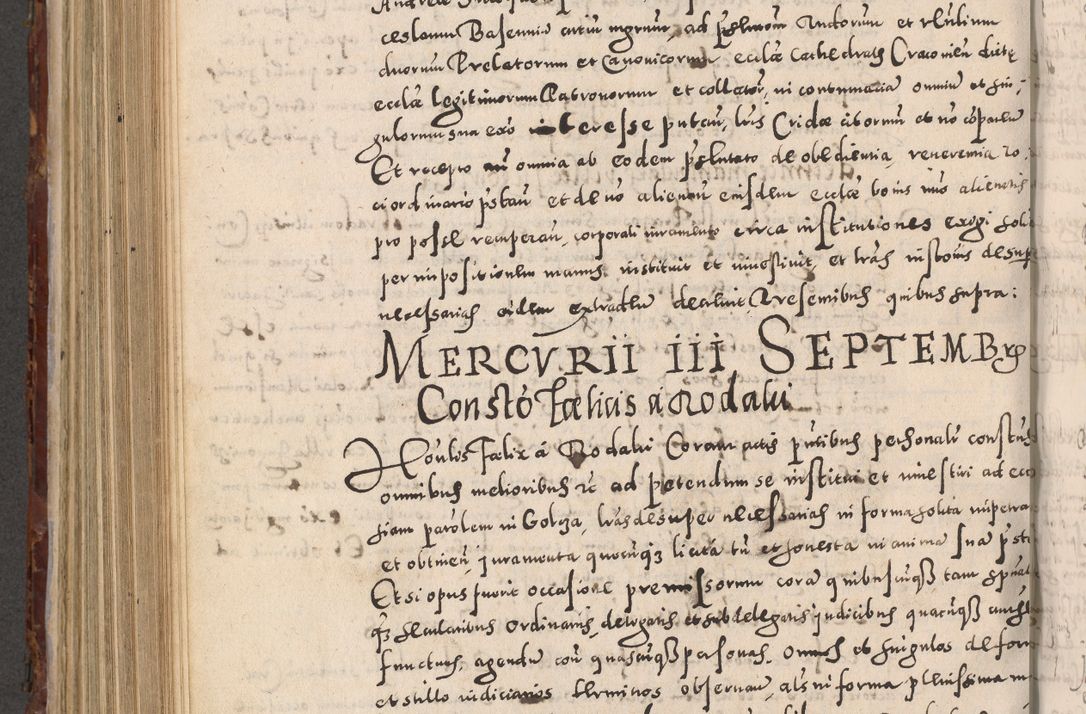 ceslaum Baseniũ artiũ mgrum, ad pñtationem Rndorum et vñlium
dnorum Prelatorum et Canonicorum ecclæ Cathedralis Cracovien dictę
ecclæ legitimorum Patronorum et collator, in contumaciam omnium et sin-
gulorum sua exõ interesse putan, lris Cridæ citorum et nõ cõparen
Et recepto omnia ab eodem pñtato de obedientia, reverentia
ordinario pstan et de nõ alienan eiusdem ecclæ bonis imo alienatis
pro posse recuperan, corporali iuramento circa institutiones exigi soli
per impositionem manus instituit et investivit, et lras in stomis desup
necessarias eidem extraden decrevit, Presentibus quibus supra:
MERCVRII III SEPTEMBRIS
Constõ Fælicis a Rodalui
Nobilis Fælix a Rodalui Coram actis pñtibus personali constus
omnibus melioribus etc ad petendum se institui et investiri ad ecc
siam parolem in Golcza, lras desuper necessarias in forma solita impetra
et obtinen, iuramenta quocunq licita tñ et honesta in anima sua psta
Et si opus fuerit occasione premissorum coram quibuscunq tam spual
q secularibus ordinariis, delegatis et subdelegatis iudicibus quacunq auth
functus, agendum con quascunq personas. Omnes et singulos de form
et stillo iudiciarios terminos observan, als in forma plenissima